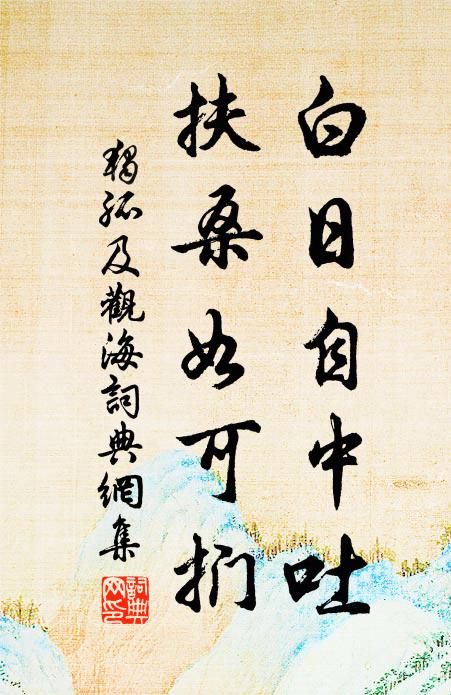 白日自中吐
扶桑如可捫
獨孤及觀海詞典網集
詞典
网印